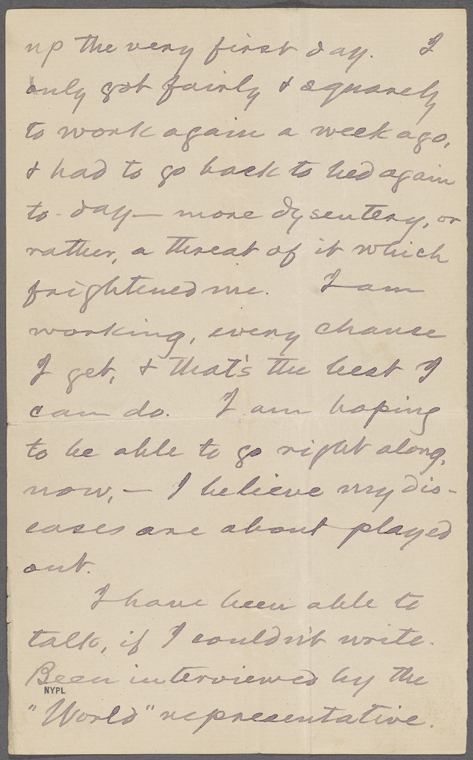 up the very first day. I
only got fairly & squarely
to work again a week ago,
& had to go back to bed again
to-day— more dysentery, or
rather, a threat of it which
frightened me. I am
working, every chance
I get, & that's the best I
can do. I am hoping
to be able to go right along,
now,— I believe my dis-
eases are about played
out.
I have been able to
talk, if I couldn't write.
Been interviewed by the
NYPL
"World" representative.